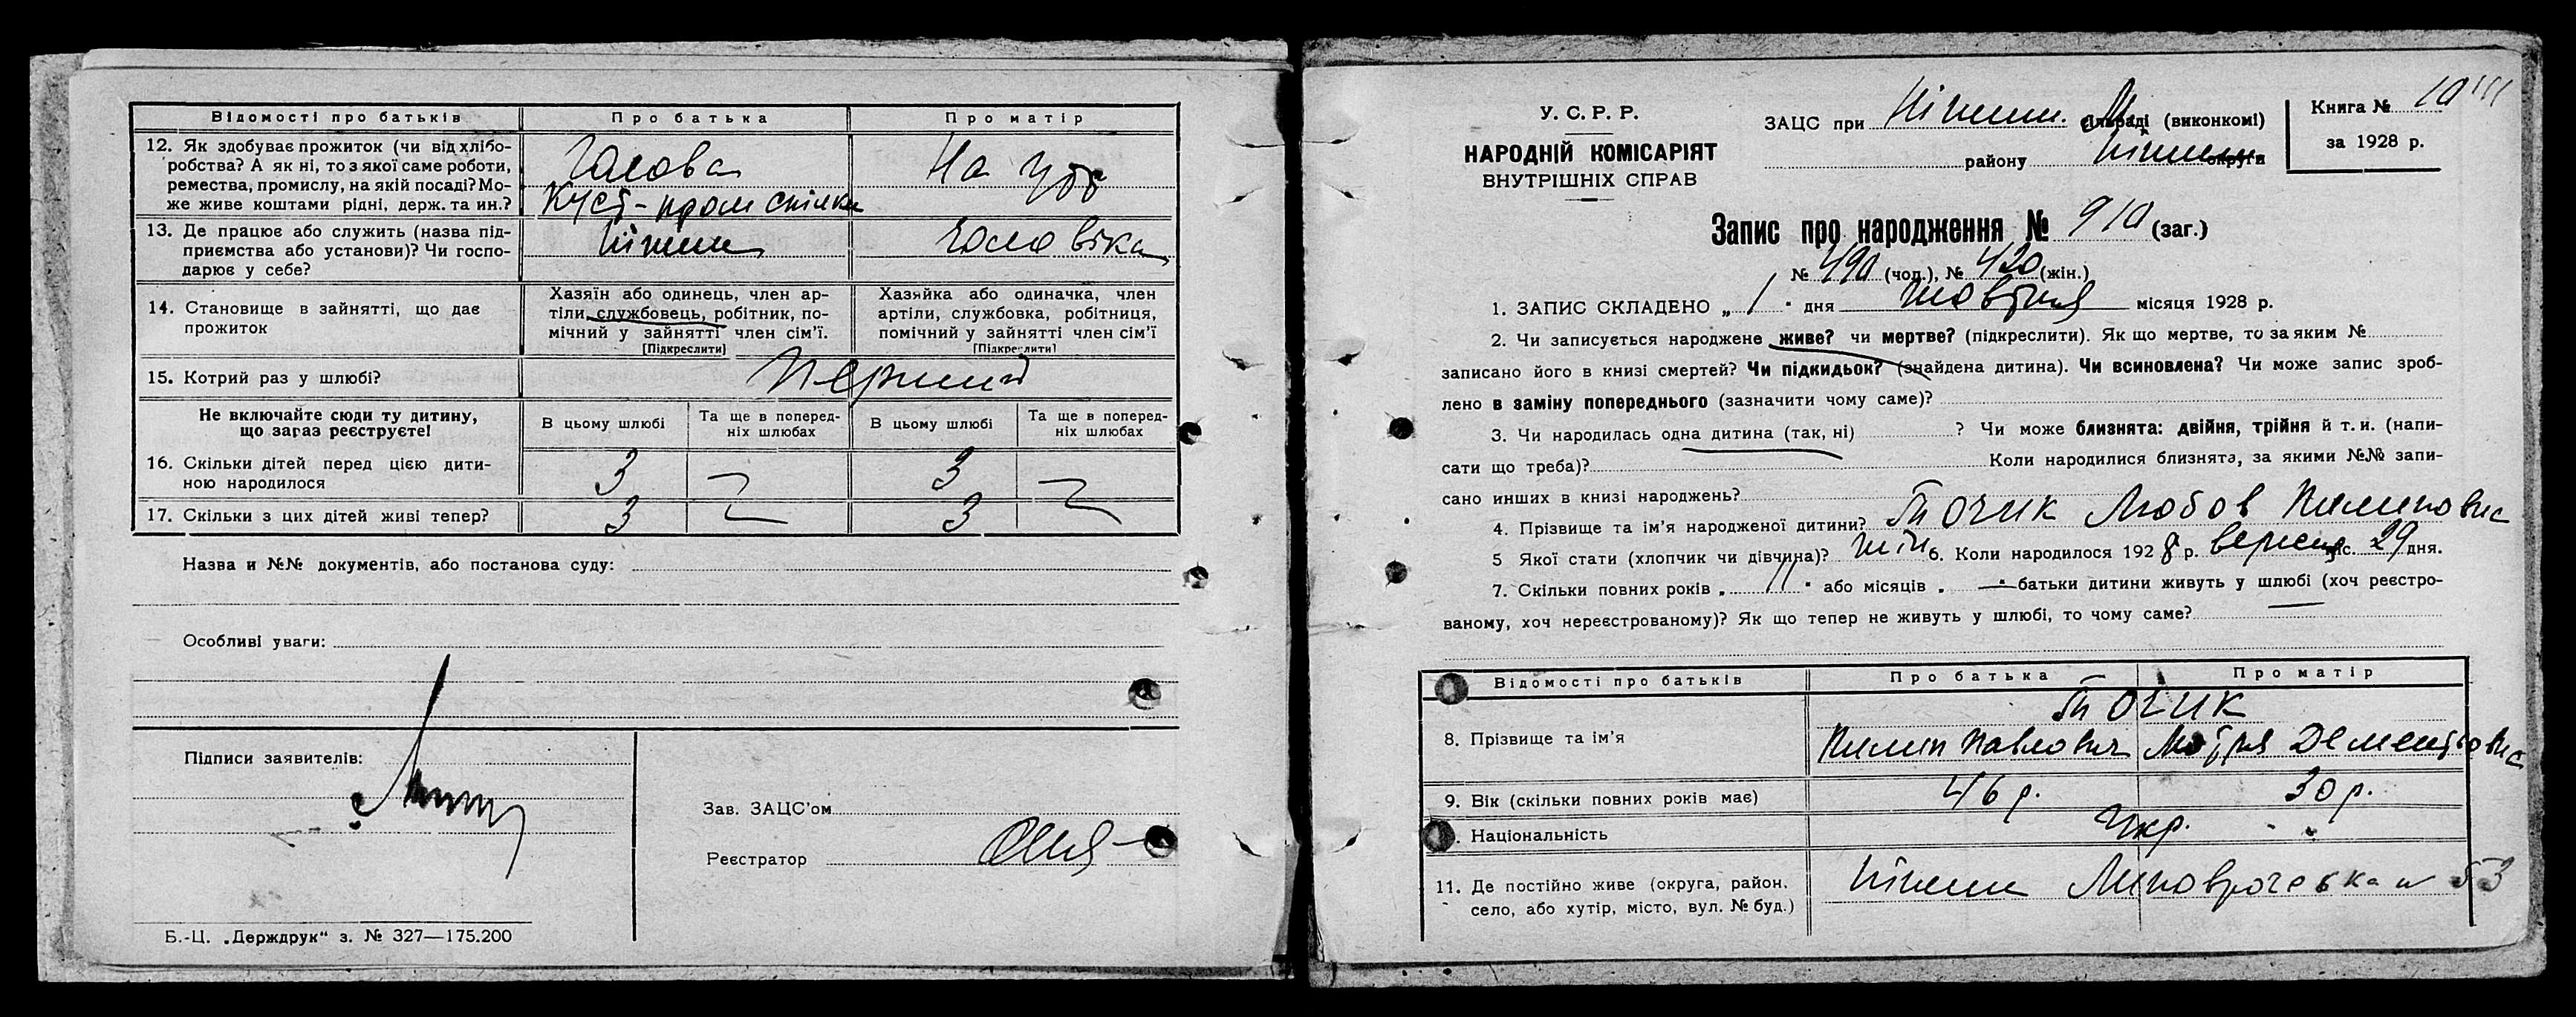 Відомості про батьків Про батька Про матір
12. Як здобуває прожиток (чи від хлібо-
робства? А як ні, то з якої саме роботи,
ремества, промислу, на якій посаді? Мо-
же живе коштами рідні, держ. та ин.?
Голова
Куст-пром спілки
На утр
13. Де працює або служить (назва під-
приємства або установи)? Чи госпо-
дарює у себе?
Ніжин
чоловіка
14. Становище в зайнятті, що дає
прожиток
Хазяїн або одинець, член ар-
тіли, службовець, робітник, по-
мічний у зайнятті член сім'ї.
[Підкреслити]
Хазяйка або одиначка, член
артіли, службовка, робітниця,
помічний у зайнятті член сім'ї
[Підкреслити]
15. Котрий раз у шлюбі? Перший
Не включайте сюди ту дитину,
що зараз реєструєте!
В цьому шлюбі
Та ще в поперед-
ніх шлюбах
В цьому шлюбі
Та ще в поперед-
ніх шлюбах
16. Скільки дітей перед цією дити-
ною народилося
3 3
17. Скільки з цих дітей живі тепер? 3 3
Назва и №№ документів, або постанова суду:
Особливі уваги:
Підписи заявителів:
Зав. ЗАЦС'ом
Реєстратор
Б.-Ц. „Держдрук“ з. № 327—175.200
У. С. Р. Р.
НАРОДНІЙ КОМІСАРІЯТ
ВНУТРІШНІХ СПРАВ
ЗАЦС при Ніжин. сільраді (виконкомі)
району Ніжин округи
Книга № 10
за 1928 р.
Запис про народження № 910 (заг.)
№ 490 (чол.), № 420 (жін.)
1. ЗАПИС СКЛАДЕНО „1" дня жовтня місяця 1928 р.
2. Чи записується народжене живе? чи мертве? (підкреслити). Як що мертве, то за яким №
записано його в книзі смертей? Чи підкидьок? (знайдена дитина). Чи всиновлена? Чи може запис зроб-
лено в заміну попереднього (зазначити чому саме)?
3. Чи народилась одна дитина (так, ні) ? Чи може близнята: двійня, трійня й т. и. (напи-
сати що треба)? Коли народилися близнята, за якими №№ запи-
сано инших в книзі народжень?
4. Прізвище та ім'я народженої дитини? Точик Любов Пилиповна
5 Якої стати (хлопчик чи дівчина)? жін 6. Коли народилося 1928 р. вересня міс. 29 дня.
7. Скільки повних років „11" або місяців „—" батьки дитини живуть у шлюбі (хоч реєстро-
ваному, хоч нереєстрованому)? Як що тепер не живуть у шлюбі, то чому саме?
Відомості про батьків Про батька Про матір
8. Прізвище та ім'я
Точик
Пилип Павлович Мотря Дементьовна
9. Вік (скільки повних років має) 46 р. 30 р.
10. Національність Укр. "
11. Де постійно живе (округа, район,
село, або хутір, місто, вул. № буд.)
Ніжин 53